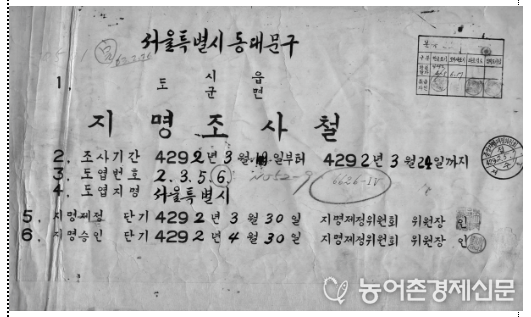 서울특별시 동대문구
1. 도 시 읍
군 면
지 명 조 사 철
2. 조사기간 4292년 3월 일부터 4292년 3월 24일까지
3. 도엽번호 2.3.5⑥
4. 도엽지명 서울특별시
5. 지명제정 단기 4292년 3월 30일 지명제정위원회 위원장 인
6. 지명승인 단기 4292년 4월 30일 지명제정위원회 위원장 인
농어촌경제신문